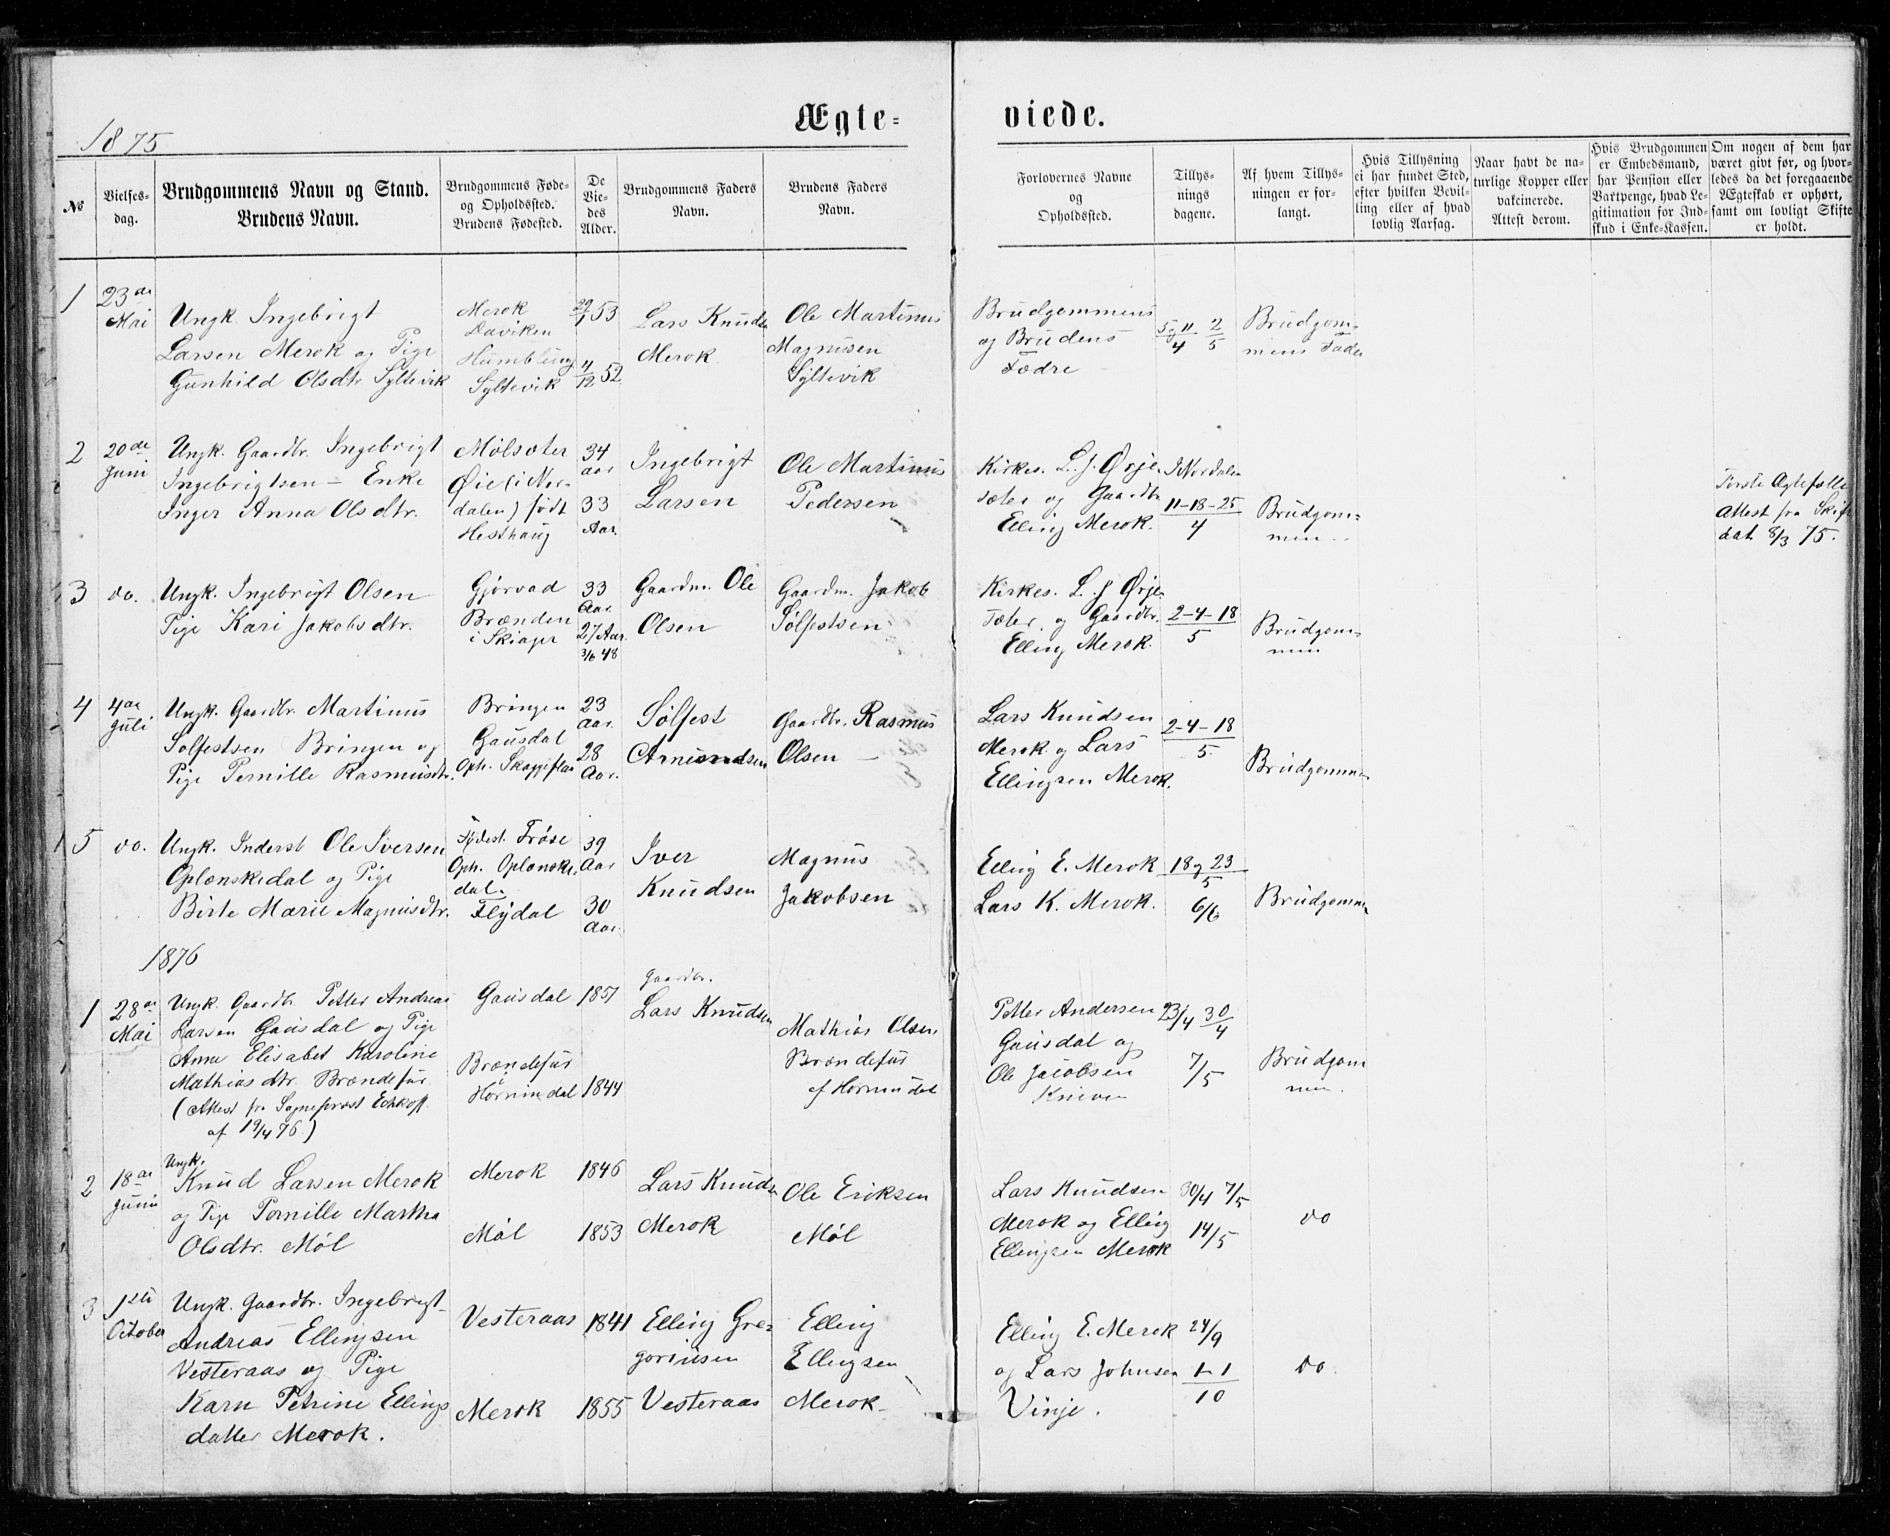 Ægte= viede.
1875
No
Vielses-
dag.
Brudgommens Navn og Stand.
Brudens Navn.
Brudgommens Føde-
og Opholdssted.
Brudens Fødested.
De
Vie-
des
Alder.
Brudgommens Faders
Navn.
Brudens Faders
Navn.
Forlovernes Navne
og
Opholdssted.
Tillys-
nings
dagene.
Af hvem Tillys-
ningen er for-
langt.
Hvis Tillysning
ei har fundet Sted,
efter hvilken Bevil-
ling eller af hvad
lovlig Aarsag.
Naar havt de na-
turlige Kopper eller
vakcinerede.
Attest derom.
Hvis Brudgommen
er Embedsmand,
har Pension eller
Vartpenge, hvad Le-
gitimation for Ind-
skud i Enke-Kassen.
Om nogen af dem har
været givt før, og hvor-
ledes da det foregaaende
Ægteskab er ophørt,
samt om lovligt Skifte
er holdt.
1
23de
Mai
Ungk. Ingebrigt
Larsen Merok og Pige
Gunhild Olsdtr. Syltevik
Merok
Daviken
Humblung
Syltevik
29/1 53
11/12 52
Lars Knuds
Merok.
Ole Martinus
Magnusen
Syltevik
Brudgommens
og Brudens
Fædre
5 og 11/4 2/5
Brudgom=
mens Fader
2
20de
Juni
Ungk. Gaardbr. Ingebrigt
Ingebrigtsen - Enke
Inger Anna Olsdtr.
Mølsæter
Øie (i Nor-
dalen) født
Hesthaug
34
aar
33
Aar.
Ingebrigt
Larsen
Ole Martinus
Pedersen
Kirkes. L. J. Ørje
sæter og Gaardbr
Elling Merok.
I Nordalen
11-18-25
4
Brudgom=
men.
Første Ægtefælle
Attest fra Skift
dat. 8/3 75.
3
do.
Ungk. Ingebrigt Olsen
Pige Kari Jakobsdtr.
Gjørvad
Brænden
i Skiager
33
Aar.
27 Aar.
3/6 48
Gaardm. Ole
Olsen
Gaardm. Jakob
Sølfestsen
Kirkes. L. J Ørje
sæter og Gaardbr.
Elling Merok.
2-4-18
5
Brudgom=
men
4
4de
Juli
Ungk. Gaardbr. Martinus
Solfestsen Bringen og
Pige Pernille Rasmusdtr.
Bringen
Gausdal
Oph. Skaggeflaa
23
aar.
28
Aar.
Sølfest
Amundsen
Gaardbr. Rasmus
Olsen -
Lars Knudsen
Merok og Lars
Ellingsen Merok.
2-4-18
5.
Brudgommen
5
do.
Ungk. Inderst Ole Iversen
Oplænskedal og Pige
Birte Marie Magnusdtr.
Fødest. Frøse
Oph. Oplænske,
dal.
Flydal
39
Aar
30
Aar.
Iver
Knudsen
Magnus
Jakobsen
Elling E. Merok
Lars K. Merok.
18 og 23
5
6/6
Brudgommen
1876
1
28de
Mai
Ungk. Gaardbr. Petter Andreas
Larsen Gausdal og Pige
Anna Elisabet Karoline
Mathiasdtr. Brændefur
(Attest fra Sogneprest Eckhoff
af 19/4 76)
Gausdal
Brændefur
Hornindal
1851
1844
Gaardbr.
Lars Knudsen
Mathias Olsen
Brændefur
af Hornindal
Petter Andersen
Gausdal og
Ole Jacobsen
23/4 30/4
7/5
Brudgom
men.
2
18de
Juni
Ungk.
Knud Larsen Merok
og Pige Pernille Martha
Olsdtr. Møl
Merok
Møl
1846
1853
Lars Knuds
Merok
Ole Eriksen
Møl
Lars Knudsen
Merok og Elling
Ellingsen Merok
30/4 7/5
14/5
do
3
1ste
October
Ungk. Gaardbr. Ingebrigt
Andreas Ellingsen
Vesteraas og Pige
Karn Petrine Ellings
datter Merok.
Vesteraas
Merok
1841
1855
Elling Gre=
goriusen
Vesteraas
Elling
Ellingsen
Merok
Elling E. Merok
og Lars Johnsen
Vinje.
24/9
1-1
10
do.